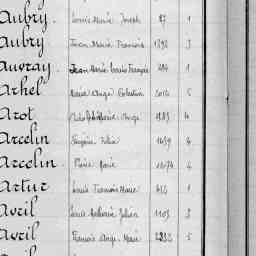 Aubry Louis Marie Joseph 87 1
Aubry Jean Marie François 1392 3
Auvray Jean Marie Louis François 284 1
Arhel Marie Ange Célestin 5
Arot Marie Ange 1183 4
Arcelin Eugène Félix 1659 4
Arcelin Pierre Marie 1674 4
Artur Louis François Marie 1
Avril Louis Julien 1103 3
Avril François Ange Marie 5